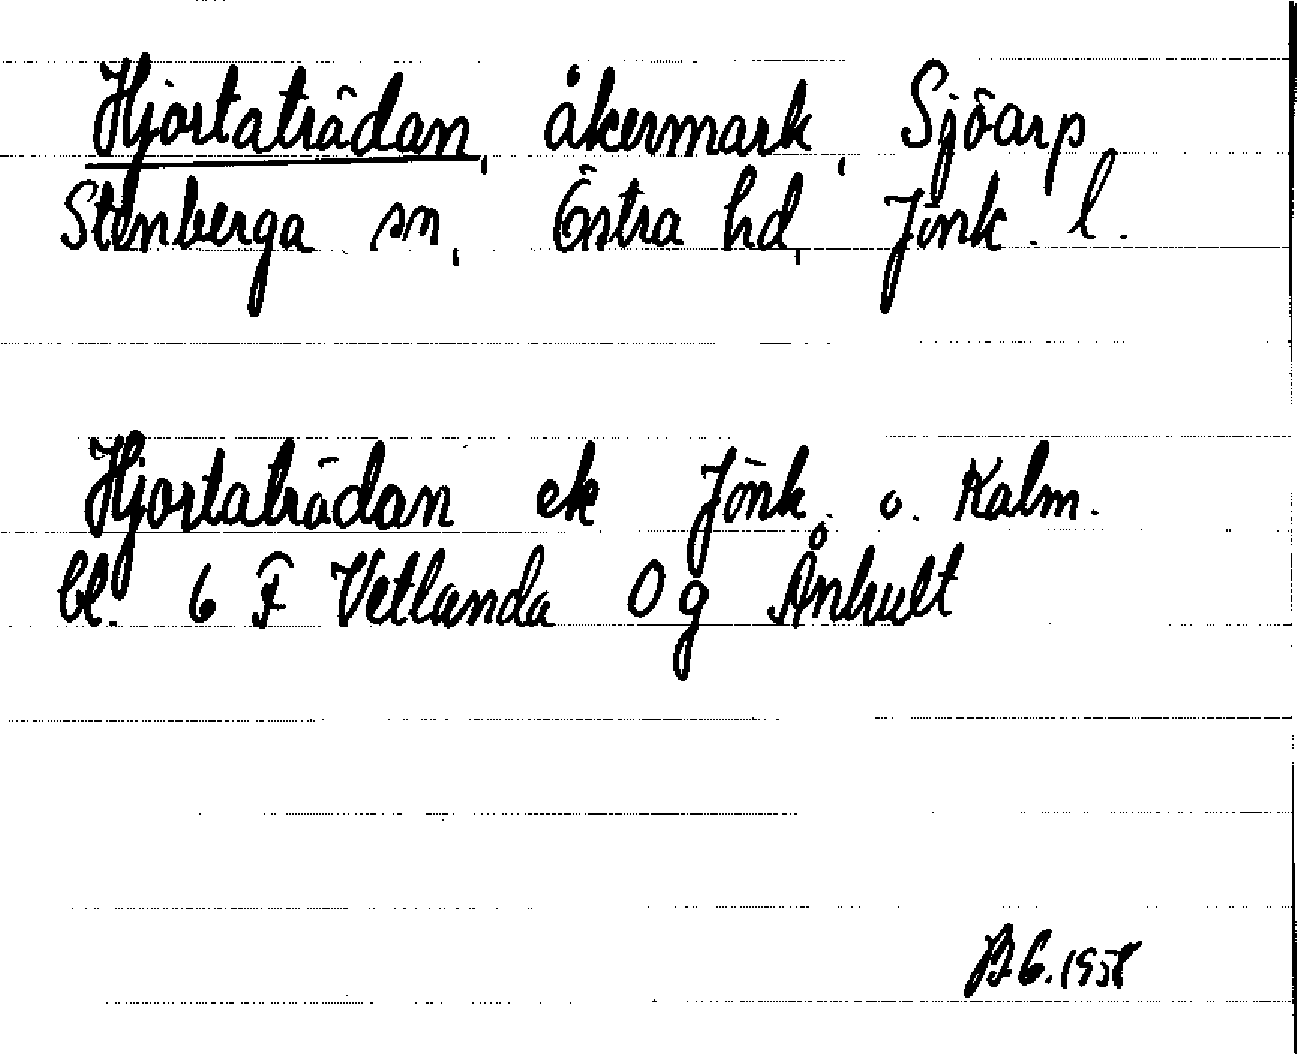 Hjortaträdan, åkermark, Sjöarp
Stenberga sn, Östra hd, Jönk. l.
Hjortaträdan ek Jönk. o. Kalm.
bl. 6 F Vetlanda 0 g Ånhult
B G. 1958